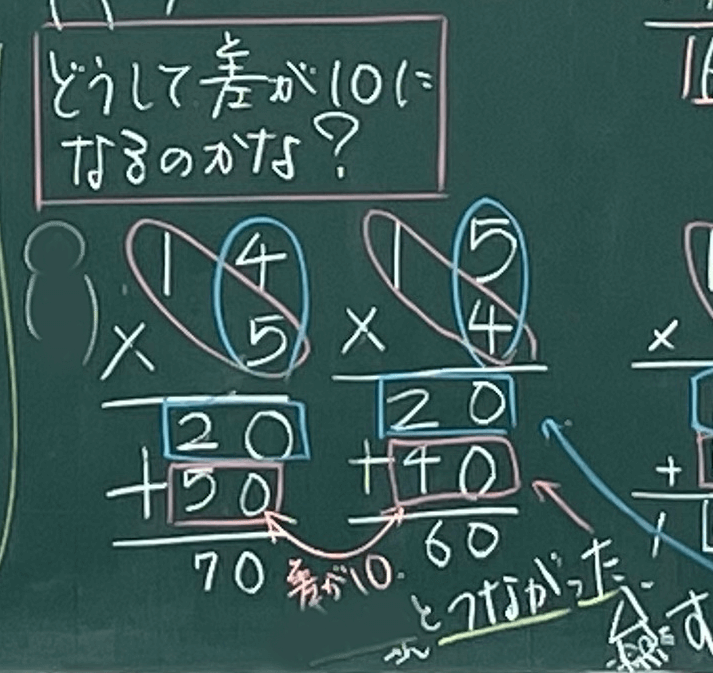 どうして差が10に
なるのかな?
14
×5
20
+50
70
15
×4
20
+40
60
差が10.
とつながった
さん
16
×
+